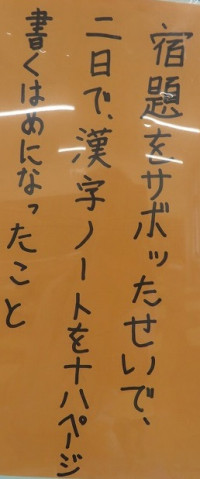 宿題をサボッたせいで、
二日で、漢字ノートを十八ページ
書くはめになったこと